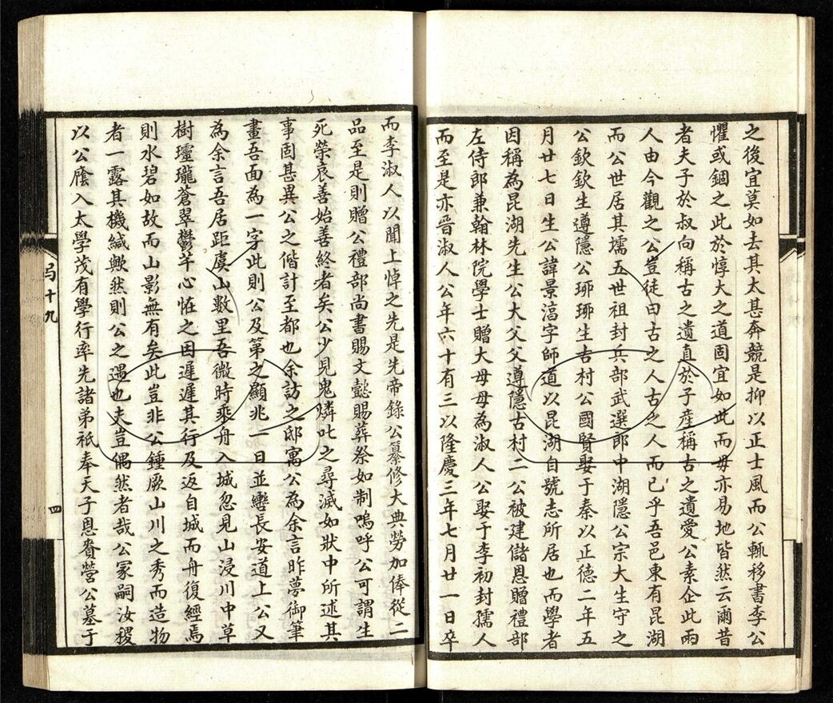 之後宜莫如去其太甚奔競是抑以正士風而公輙移書李公
懼或錮之此於惇大之道固宜如此而毋亦易地皆然云爾昔
者夫子於叔向稱古之遺直於子產稱古之遺愛公素企此兩
人由今觀之公豈徒曰古之人古之人而已乎吾邑東有昆湖
而公世居其壖五世祖封兵部武選郎中湖隱公宗大生守之
公欽欽生遵隱公琊琊生古村公國賢娶于秦以正德二年五
月廿七日生公諱景淳字師道以昆湖自號志所居也而學者
因稱為昆湖先生公大父父遵隱古村二公被建儲恩贈禮部
左侍郎兼翰林院學士贈大母母為淑人公娶于李初封孺人
而至是亦晉淑人公年六十有三以隆慶三年七月廿一日卒
而李淑人以聞上悼之先是先帝錄公纂修大典勞加俸從二
品至是則贈公禮部尚書賜文懿賜葬祭如制嗚呼公可謂生
死榮哀善始善終者矣公少見鬼燐吐之尋滅如狀中所述其
事固甚異公之偕計至都也余訪之邸寓公為余言昨夢御筆
畫吾面為一字此則公及第之顯兆一日並轡長安道上公又
為余言吾居距虞山數里吾微時乘舟入城忽見山浸川中草
樹瓏蒼翠鬱芊心恠之因遲遲其行及返自城而舟復經焉
則水碧如故而山影無有矣此豈非公鍾厥山川之秀而造物
者一露其機緘歟然則公之遇也夫豈偶然者哉公冢嗣汝稷
以公廕入太學茂有學行率先諸弟祇奉天子恩賚營公墓于
十九
四